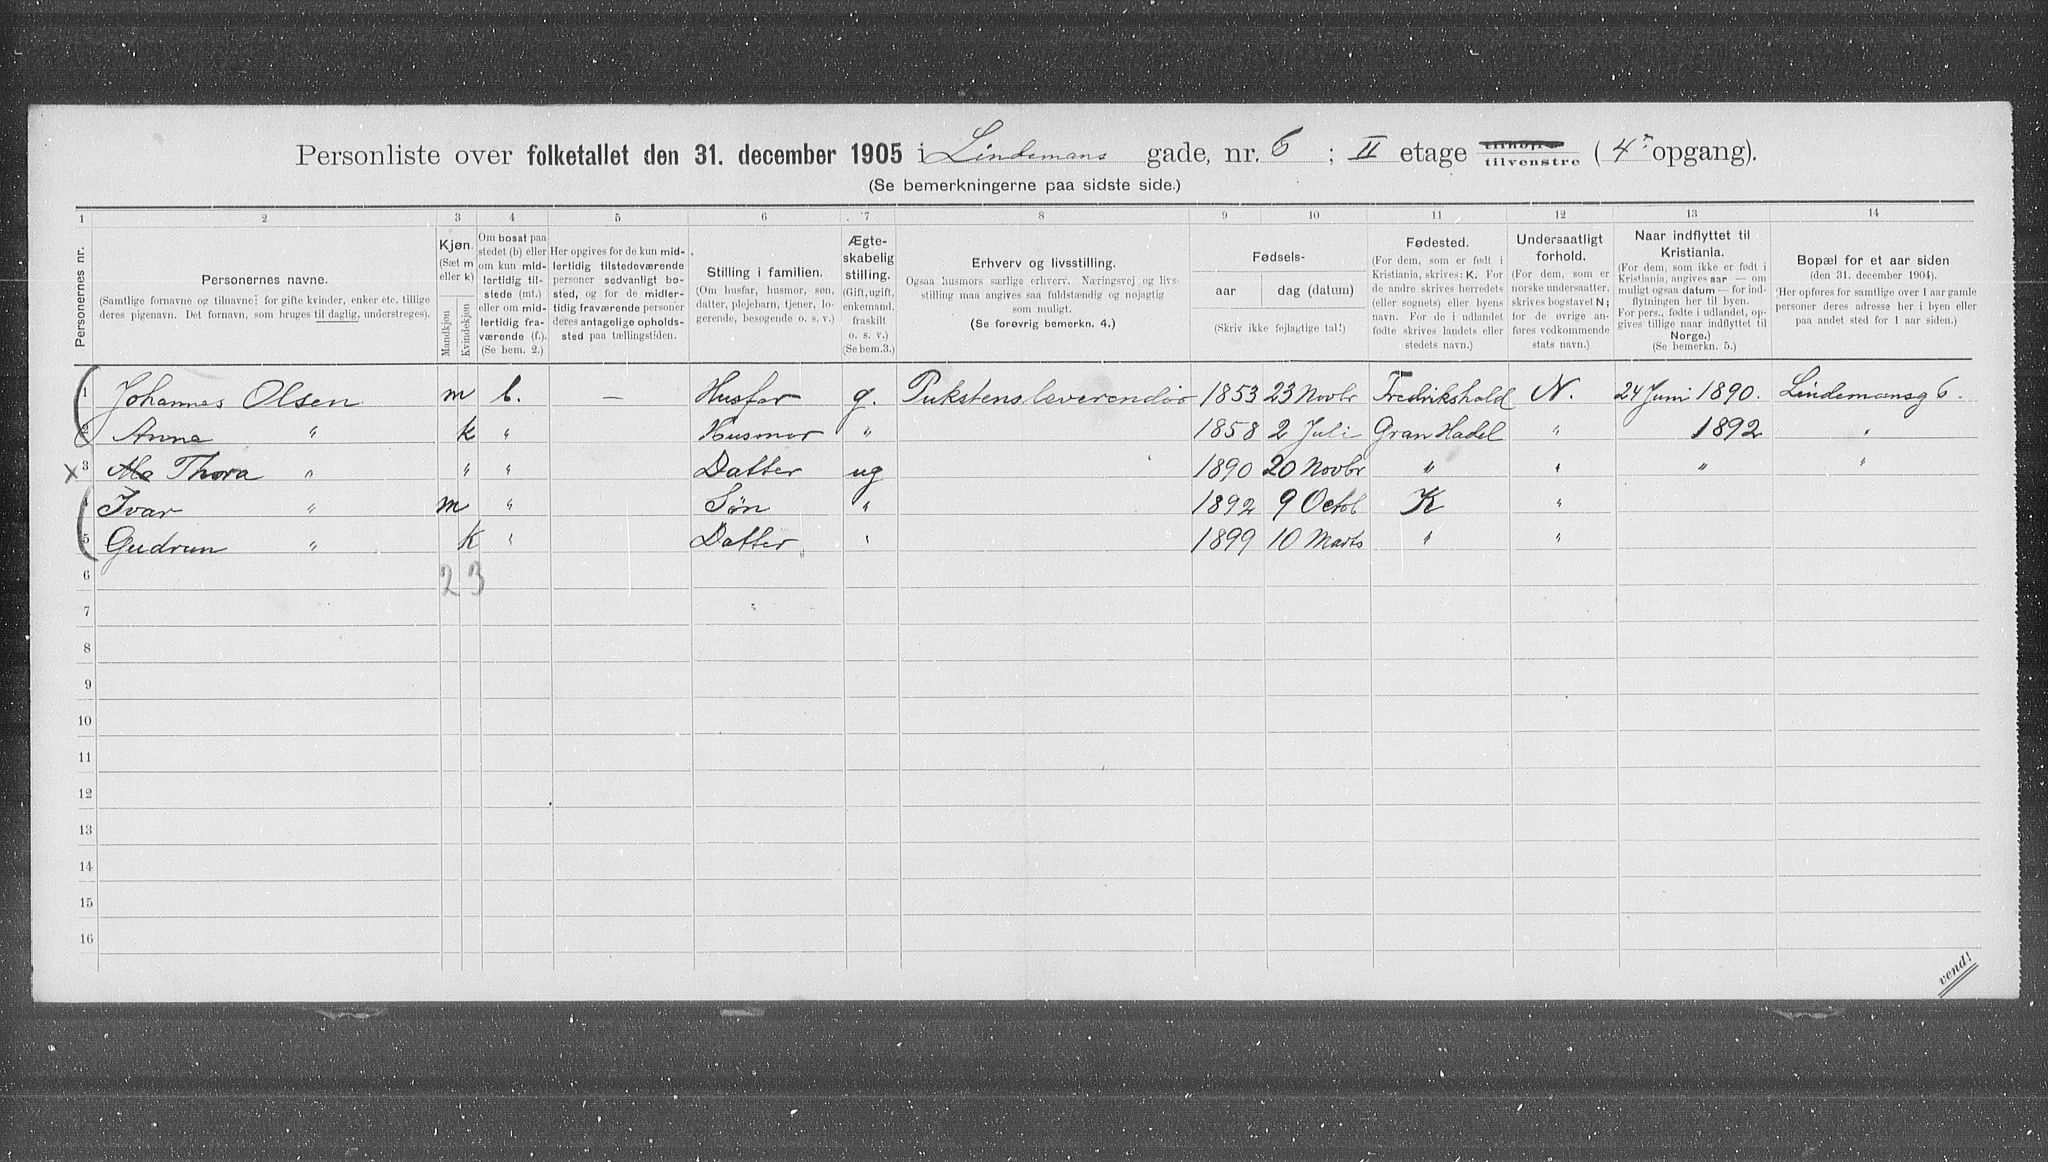 Personliste over folketallet den 31. december 1905 i Lindemans gade, nr. 6 ; II etage tilhøire tilvenstre ( 4 opgang).
(Se bemerkningerne paa sidste side.)
1 2 3 4 5 6 7 8 9 10 11 12 13 14
Personernes nr.
Personernes navne.
(Samtlige fornavne og tilnavne; for gifte kvinder, enker etc. tillige
deres pigenavn. Det fornavn, som bruges til daglig, understreges).
Kjøn.
(Sæt m
eller k)
Mandkjøn
Kvindekjøn
Om bosat paa
stedet (b) eller
om kun mid-
lertidig til-
stede (mt.)
eller om mid-
lertidig fra-
værende (f.).
(Se bem. 2.)
Her opgives for de kun mid-
lertidig tilstedeværende
personer sedvanligt bo-
sted, og for de midler-
tidig fraværende personer
deres antagelige opholds-
sted paa tællingstiden.
Stilling i familien.
(Om husfar, husmor, søn,
datter, plejebarn, tjener, lo-
gerende, besøgende o. s. v.)
Ægte-
skabelig
stilling.
(Gift, ugift,
enkemand,
fraskilt
o. s. v.)
(Se bem.3.)
Erhverv og livsstilling.
Ogsaa husmors særlige erhverv. Næringsvej og livs-
stilling maa angives saa fuldstændig og nøjagtig
som muligt.
(Se forøvrig bemerkn. 4.)
Fødsels-
aar
dag (datum)
(Skriv ikke fejlagtige tal!)
Fødested.
(For dem, som er født i
Kristiania, skrives: K. For
de andre skrives herredets
(eller sognets) eller byens
navn. For de i udlandet
fødte skrives landets eller
stedets navn.)
Undersaatligt
forhold.
(For dem, som er
norske undersaatter,
skrives bogstavet N;
for de øvrige an-
føres vedkommende
stats navn.)
Naar indflyttet til
Kristiania.
(For dem, som ikke er født i
Kristiania, angives aar — om
muligt ogsaa datum — for ind-
flytningen her til byen.
For pers., fødte i udlandet, op-
gives tillige naar indflyttet til
Norge.)
(Se bemerkn. 5.)
Bopæl for et aar siden
(den 31. december 1904).
(Her opføres for samtlige over 1 aar gamle
personer deres adresse her i byen eller
paa andet sted for 1 aar siden.)
1 Johannes Olsen m b. — Husfar g. Pukstensleverendør 1853 23 Novbr Fredrikshald N. 24 Juni 1890. Lindemansg 6.
2 Anna " k " Husmor " 1858 2 Juli Gran Hadel " 1892 "
x 3 Thora " " " Datter ug 1890 20 Novbr " " " "
4 Ivar " m " Søn " 1892 9 Octob K "
5 Gudrun " k " Datter " 1899 10 Marts " "
6 2 3
7
8
9
10
11
12
13
14
15
16
vend!